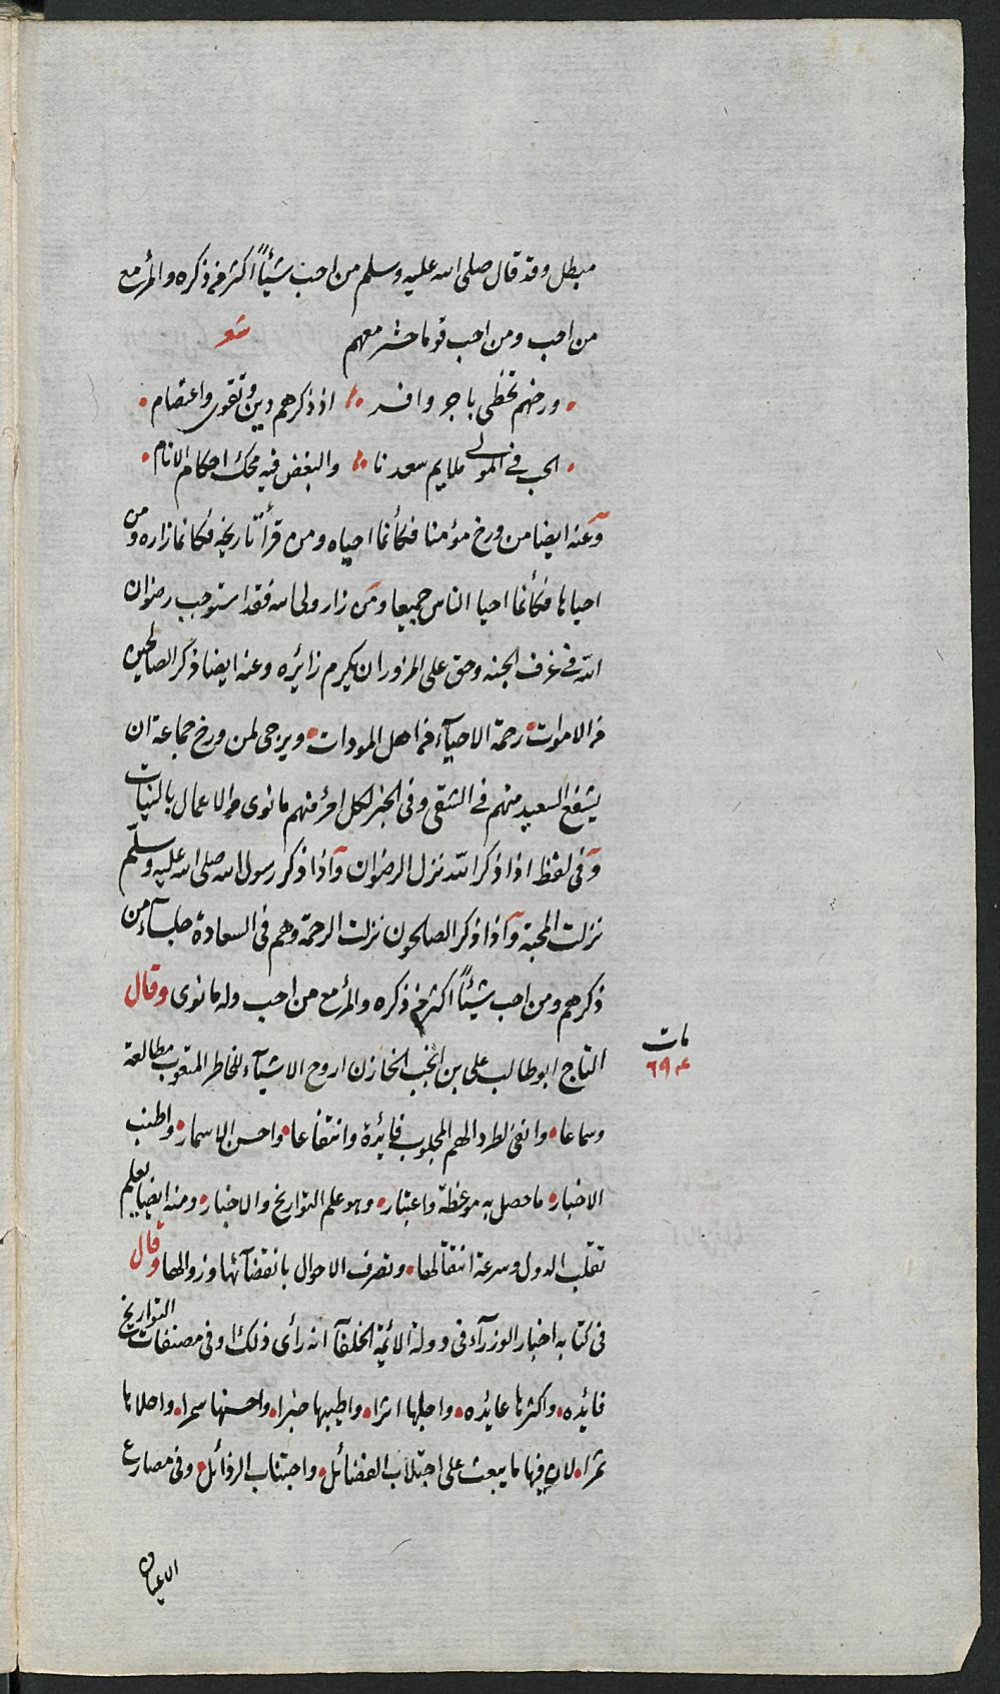 مبطل وقد قال صلى الله عليه وسلم من احب شيئاً اكثر من ذكره والمرء مع
من احب ومن احب قوما حشر معهم شعر
ورخهم تحظى باجر وافر اذ ذكرهم دين وتقوى واعتصام
الحب في المولى ملايم سعدنا والبغض فيه محك احكام الانام
وعنه ايضا من ورخ مؤمنا فكأنما احياه ومن قرأ تاريخه فكانما زاره ومن
احياها فكأنما احيا الناس جميعا ومن زار ولى الله فقد استوجب رضوان
الله في غرف الجنه وحق على المزور ان يكرم زائره وعنه ايضا ذكر الصالحين
من الاموات رحمة الاحيآء من اهل المودات ويرجى لمن ورخ جماعة ان
يشفع السعيد منهم في الشقى وفى الخبر لكل امرء منهم ما نوى والاعمال بالنيات
وفى لفظ اذا ذكر الله نزل الرضوان واذا ذكر رسول الله صلى الله عليه وسلّم
نزلت المحبة واذا ذكر الصلحون نزلت الرحمة وهم فى السعادة جلسآء من
ذكرهم ومن احب شيئاً اكثر من ذكره والمرء مع من احب وله ما نوى وقال
التاج ابو طالب على بن انجب الخازن اروح الاشيآء للخاطر المتعوب مطالعة
مات
٦٧٤
وسماعا وانفى لطرد الهم المجلوب فائدة وانتفاعا واحسن الاسمار واطنب
الاخبار ما حصل به موعظة واعتبار وهو علم التواريخ والاخبار ومنه ايضا يعلم
تقلب الدول وسرعة انتقالها وتصرف الاحوال بانقضآئها وزوالها وقال
فى كتابه اخبار الوزرآء فى دولة الائمة الخلفآ انه رأى ذلك اوفى مصنفات التواريخ
فائده واكثرها عائده واجلها اثرا واطيبها خبرا واحسنها سمرا واحلاها
ثمرا لان فيها ما يبعث على اجتلاب الفضائل واجتناب الرذائل وفى مصارع
الاعيان